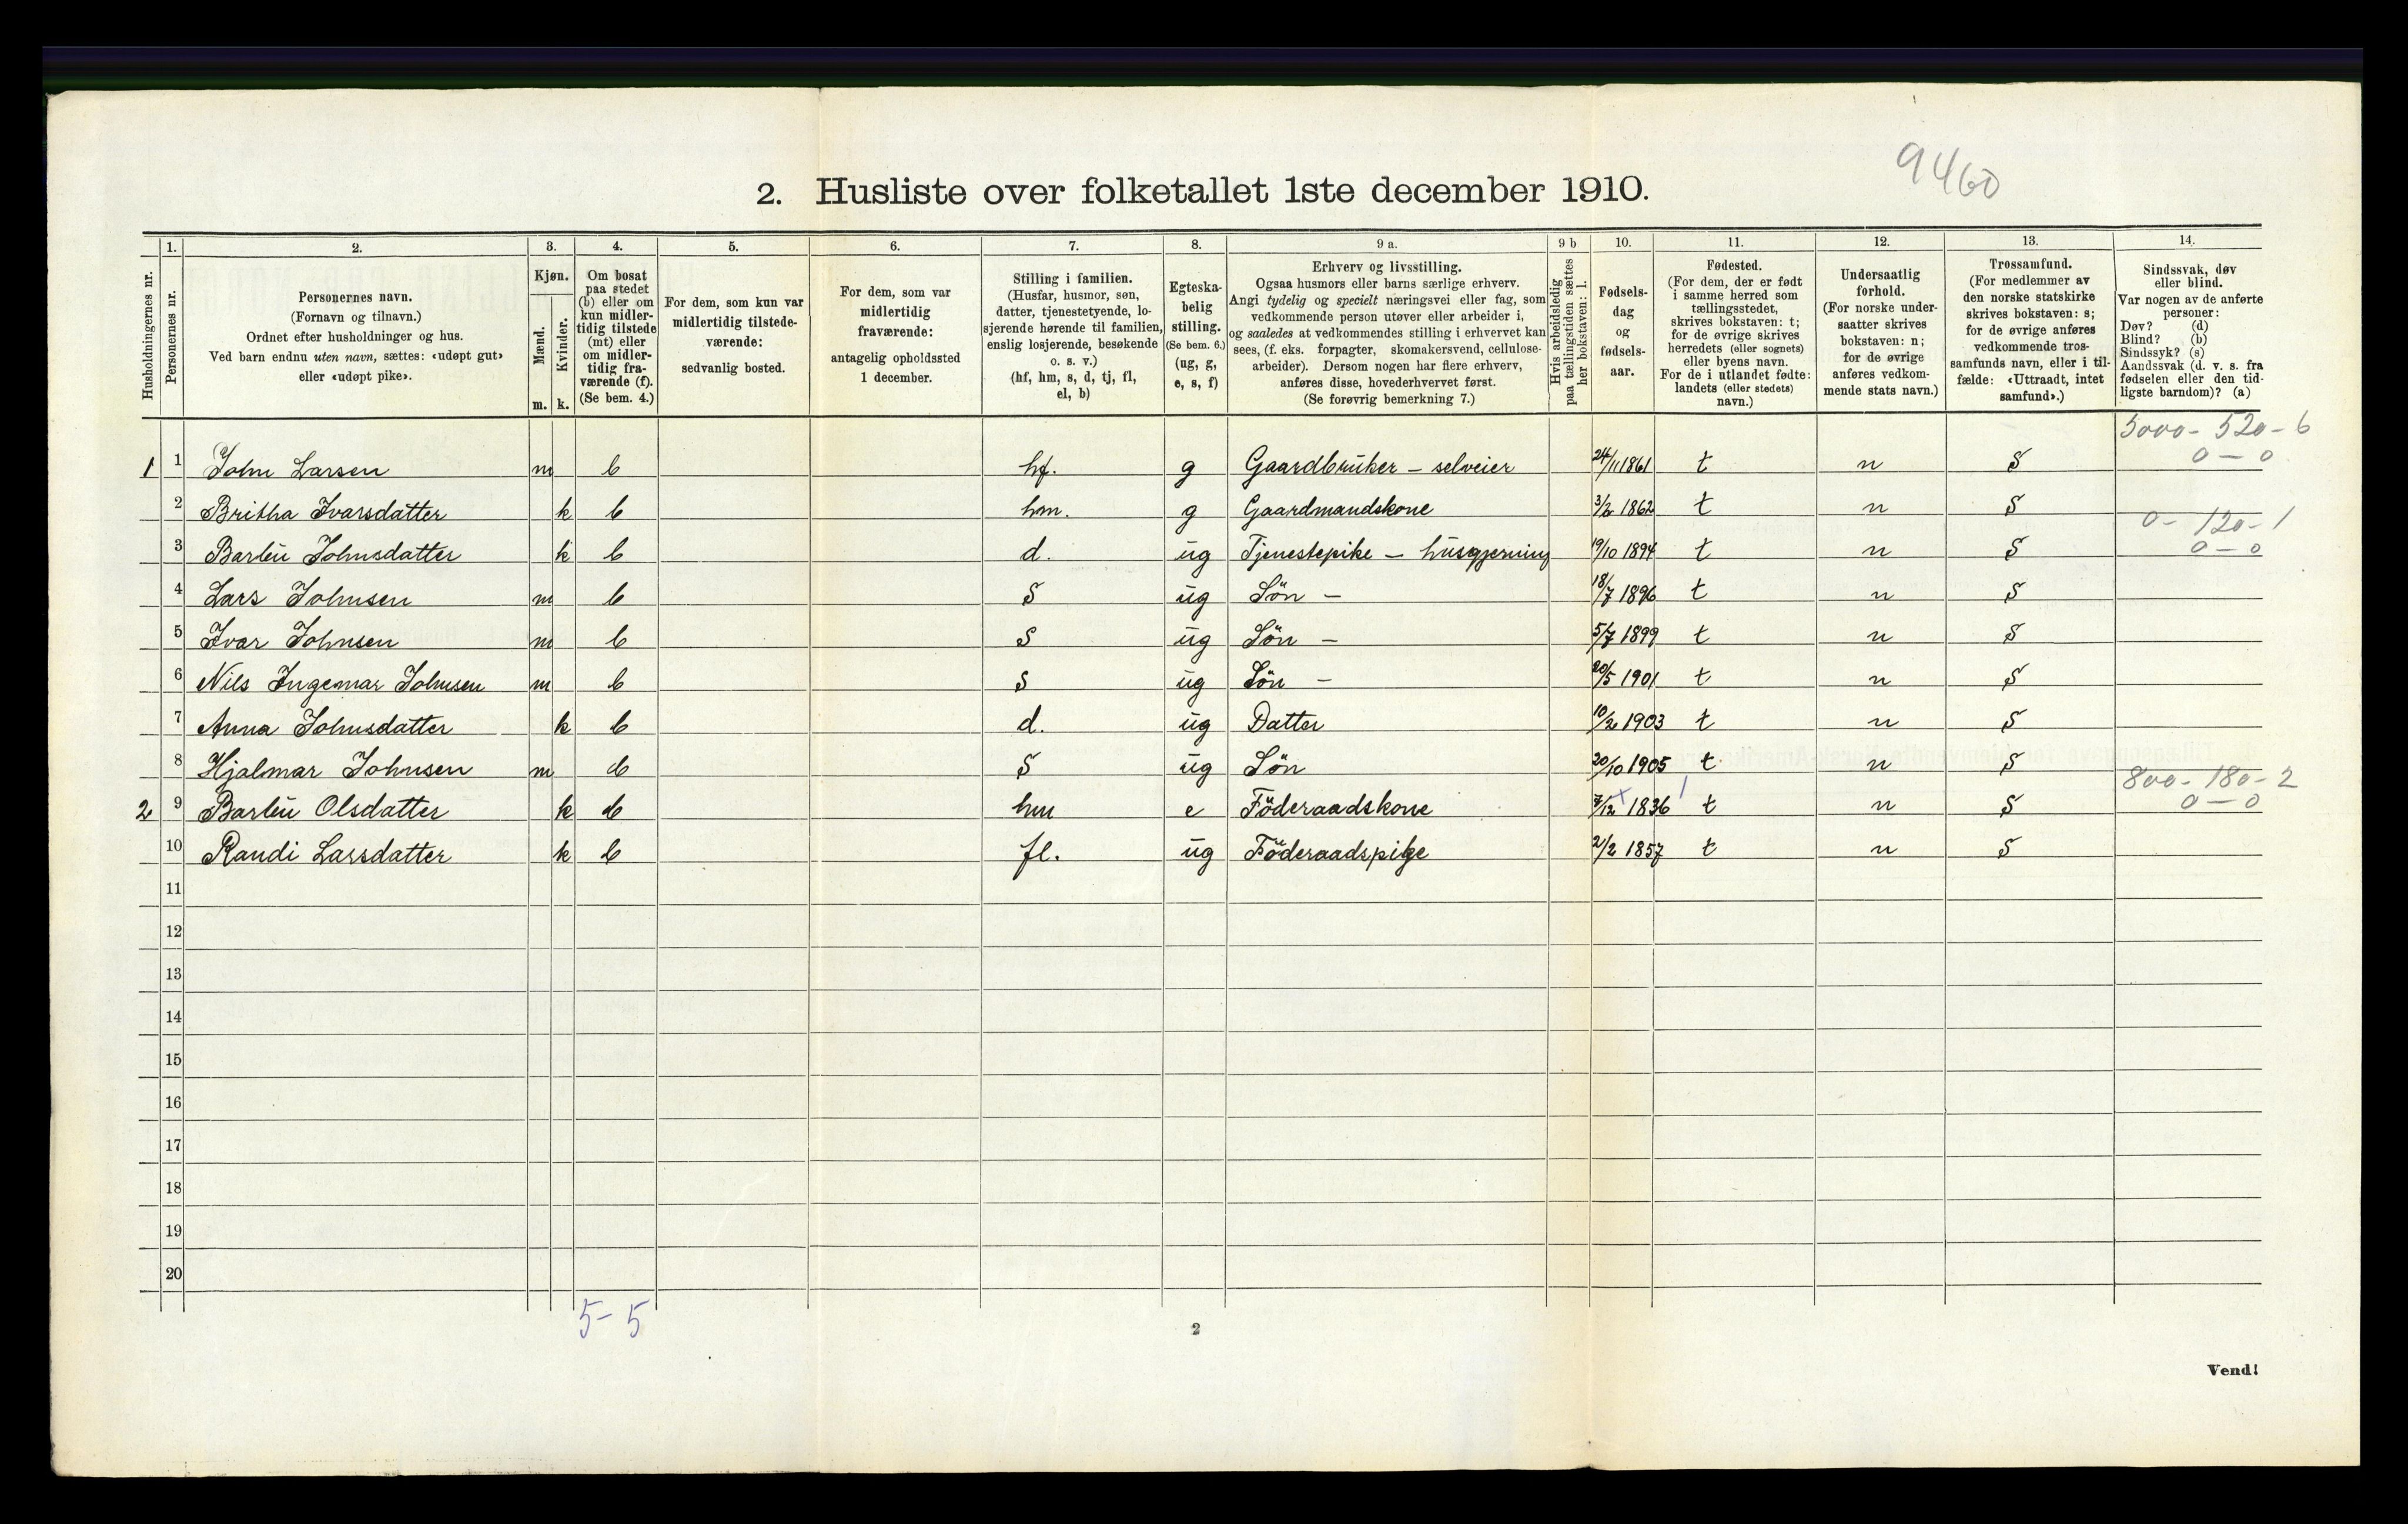 9460
2. Husliste over folketallet 1ste december 1910.
Husholdningernes nr.
1.
Personernes nr.
2.
Personernes navn.
(Fornavn og tilnavn.)
Ordnet efter husholdninger og hus.
Ved barn endnu uten navn, sættes: «udøpt gut»
eller «udøpt pike».
3.
Kjøn.
Mænd.
Kvinder.
m. k.
4.
Om bosat
paa stedet
(b) eller om
kun midler-
tidig tilstede
(mt) eller
om midler-
tidig fra-
værende (f).
(Se bem. 4.)
5.
For dem, som kun var
midlertidig tilstede-
værende:
sedvanlig bosted.
6.
For dem, som var
midlertidig
fraværende:
antagelig opholdssted
1 december.
7.
Stilling i familien.
(Husfar, husmor, søn,
datter, tjenestetyende, lo-
sjerende hørende til familien,
enslig losjerende, besøkende
o. s. v.)
(hf, hm, s, d, tj, fl,
el, b)
8.
Egteska-
belig
stilling.
(Se bem. 6.)
(ug, g,
e, s, f)
9 a.
Erhverv og livsstilling.
Ogsaa husmors eller barns særlige erhverv.
Angi tydelig og specielt næringsvei eller fag, som
vedkommende person utøver eller arbeider i,
og saaledes at vedkommendes stilling i erhvervet kan
sees, (f. eks. forpagter, skomakersvend, cellulose-
arbeider). Dersom nogen har flere erhverv,
anføres disse, hovederhvervet først.
(Se forøvrig bemerkning 7.)
9 b
Hvis arbeidsledig
paa tællingstiden sættes
her bokstaven: l.
10.
Fødsels-
dag
og
fødsels-
aar.
11.
Fødested.
(For dem, der er født
i samme herred som
tællingsstedet,
skrives bokstaven: t;
for de øvrige skrives
herredets (eller sognets)
eller byens navn.
For de i utlandet fødte:
landets (eller stedets)
navn.)
12.
Undersaatlig
forhold.
(For norske under-
saatter skrives
bokstaven: n;
for de øvrige
anføres vedkom-
mende stats navn.)
13.
Trossamfund.
(For medlemmer av
den norske statskirke
skrives bokstaven: s;
for de øvrige anføres
vedkommende tros-
samfunds navn, eller i til-
fælde: «Uttraadt, intet
samfund».)
14.
Sindssvak, døv
eller blind.
Var nogen av de anførte
personer:
Døv? (d)
Blind? (b)
Sindssyk? (s)
Aandssvak (d. v. s. fra
fødselen eller den tid-
ligste barndom)? (a)
5000 - 520 - 6
0 - 0
1 1 John Larsen m b hf. g Gaardbruker - selveier 24/11 1861 t n S
2 Britha Ivarsdatter k b hm. g Gaardmandskone 3/2 1862 t n S
0 - 120 - 1
0 - 0
3 Barbu Johnsdatter k b d. ug Tjenestepike - husgjerning 19/10 1894 t n S
4 Lars Johnsen m b S ug Sön - 18/7 1896 t n S
5 Ivar Johnsen m b S ug Sön - 5/7 1899 t n S
6 Nils Ingemar Johnsen m b S ug Sön - 20/5 1901 t n S
7 Anna Johnsdatter k b d. ug Datter 10/2 1903 t n S
8 Hjalmar Johnsen m b S ug Sön 20/10 1905 t n S
800 - 180 - 2
0 - 0
2 9 Barbu Olsdatter k b hm e Föderaadskone 7/12 1836 t n S
10 Randi Larsdatter k b fl. ug Föderaadspige 2/2 1857 t n S
11
12
13
14
15
16
17
18
19
20
5 - 5
2
Vend!